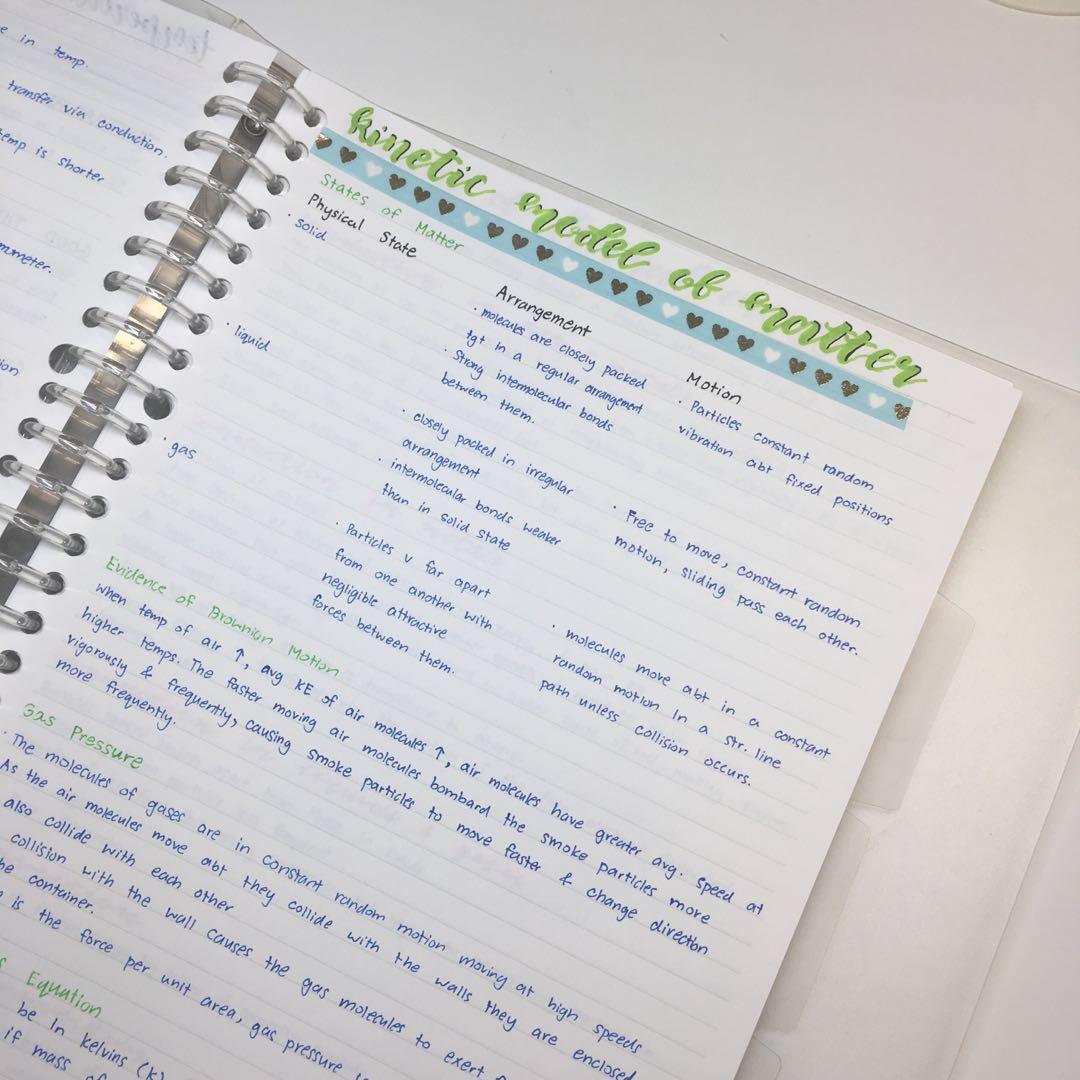 e in temp.
transfer via conduction.
temp is shorter
mometer.
kinetic model of matter
States of Matter
Physical State
Arrangement
Motion
· solid
· molecules are closely packed
tgt in a regular arrangement
· Strong intermolecular bonds
between them.
· Particles constant random
vibration abt fixed positions
· liquid
· closely packed in irregular
arrangement
· intermolecular bonds weaker
than in solid state
· Free to move, constant random
motion, sliding pass each other.
· gas
· Particles v far apart
from one another with
negligible attractive
forces between them.
· molecules move abt in a constant
random motion in a str. line
path unless collision occurs.
Evidence of Brownian Motion
When temp of air ↑, avg KE of air molecules ↑, air molecules have greater avg. speed at
higher temps. The faster moving air molecules bombard the smoke particles more
vigorously & frequently, causing smoke particles to move faster & change direction
more frequently.
Gas Pressure
· The molecules of gases are in constant random motion moving at high speeds
As the air molecules move abt they collide with the walls they are enclosed
also collide with each other
collision with the wall causes the gas molecules to exert
the container.
is the force per unit area, gas pressure
Equation
be in kelvins (K)
if mass of